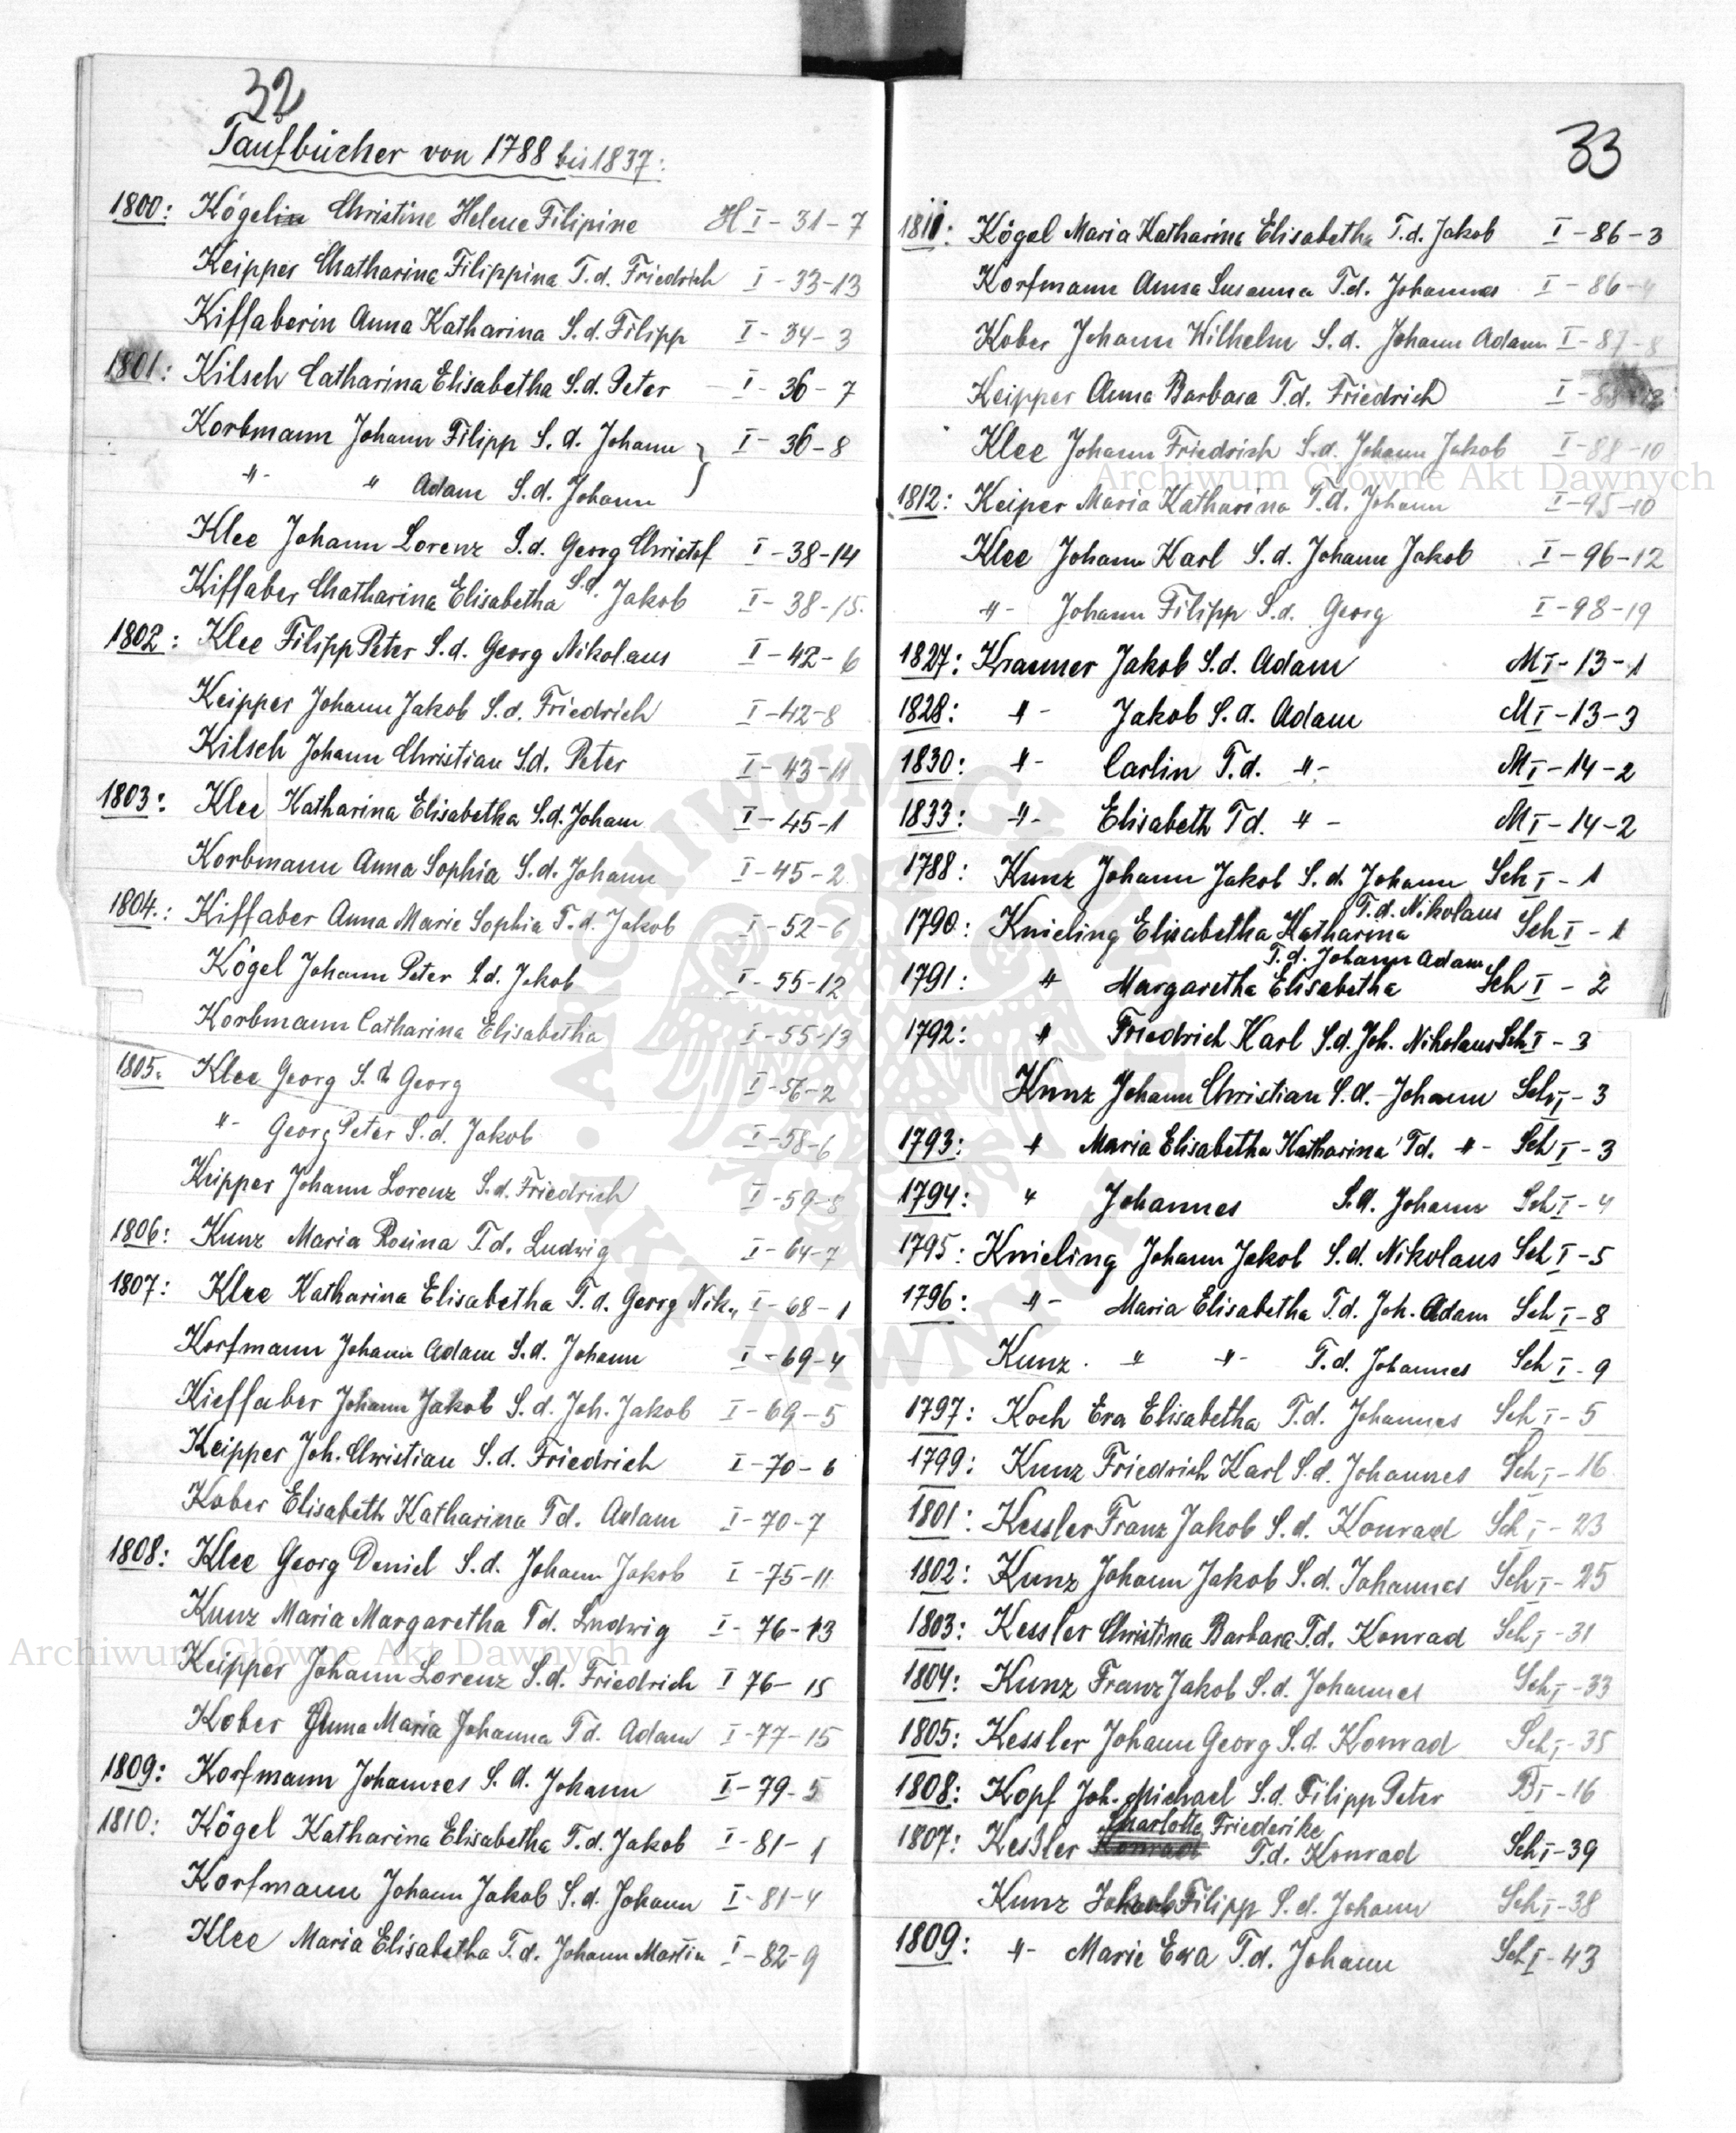 32
Taufbücher von 1788 bis 1837:
1800: Kögelin Christine Helene Filipine H I-31-7
Keipper Chatharina Filippina T.d. Friedrich I-33-13
Kiffaberin Anna Katharina S.d. Filipp I-34-3
1801: Kilsch Catharina Elisabetha S.d. Peter - I-36-7
Korbmann Johann Filipp S.d. Johann } I-36-8
"- " Adam S.d. Johann
Klee Johann Lorenz S.d. Georg Christof I-38-14
Kiffaber Chatharina Elisabetha S.d. Jakob I-38-15.
1802: Klee Filipp Peter S.d. Georg Nikolaus I-42-6
Keipper Johann Jakob S.d. Friedrich I-42-8
Kilsch Johann Christian S.d. Peter I-43-11
1803: Klee Katharina Elisabetha S.d. Johann I-45-1
Korbmann Anna Sophia S.d. Johann I-45-2
1804.: Kiffaber Anna Marie Sophia T.d. Jakob I-52-6
Kögel Johann Peter S.d. Jakob I-55-12
Korbmann Catharina Elisabetha I-55-13
1805: Klee Georg S.d. Georg I-56-2
"- Georg Peter S.d. Jakob I-58-6
Keipper Johann Lorenz S.d. Friedrich I-59-8
1806: Kunz Maria Rosina T.d. Ludwig I-64-7
1807: Klee Katharina Elisabetha T.d. Georg Nik. I-68-1
Korfmann Johann Adam S.d. Johann I-69-4
Kieffaber Johann Jakob S.d. Joh. Jakob I-69-5
Keipper Joh. Christian S.d. Friedrich I-70-6
Kober Elisabeth Katharina T.d. Adam I-70-7
1808: Klee Georg Daniel S.d. Johann Jakob I-75-11
Kunz Maria Margaretha T.d. Ludwig I-76-13
Keipper Johann Lorenz S.d. Friedrich I 76-15
Kober Anna Maria Johanna T.d. Adam I-77-15
1809: Korfmann Johannes S.d. Johann I-79-5
1810: Kögel Katharina Elisabetha T.d. Jakob I-81-1
Korfmann Johann Jakob S.d. Johann I-81-4
Klee Maria Elisabetha T.d. Johann Martin I-82-9
33
1811: Kögel Maria Katharina Elisabetha T.d. Jakob I-86-3
Korfmann Anna Susanna T.d. Johannes I-86-4
Kober Johann Wilhelm S.d. Johann Adam I-87-8
Keipper Anna Barbara T.d. Friedrich I-88-
Klee Johann Friedrich S.d. Johann Jakob I-88-10
1812: Keiper Maria Katharina T.d. Johann I-95-10
Klee Johann Karl S.d. Johann Jakob I-96-12
"- Johann Filipp S.d. Georg I-98-19
1827: Kraemer Jakob S.d. Adam M I-13-1
1828: "- Jakob S.d. Adam M I-13-3
1830: "- Carlin T.d. "- M I-14-2
1833: "- Elisabeth T.d. "- M I-14-2
1788: Kunz Johann Jakob S.d. Johann Sch I-1
1790: Knieling Elisabetha Katharina T.d. Nikolaus Sch I-1
1791: " Margaretha Elisabetha T.d. Johann Adam Sch I-2
1792: " Friedrich Karl S.d. Joh. Nikolaus Sch I-3
Kunz Johann Christian S.d. Johann Sch I-3
1793: " Maria Elisabetha Katharina T.d. "- Sch I-3
1794: " Johannes S.d. Johann Sch I-4
1795: Knieling Johann Jakob S.d. Nikolaus Sch I-5
1796: "- Maria Elisabetha T.d. Joh. Adam Sch I-8
Kunz. " "- T.d. Johannes Sch I-9
1797: Koch Eva Elisabetha T.d. Johannes Sch I-5
1799: Kunz Friedrich Karl S.d. Johannes Sch I-16
1801: Kessler Franz Jakob S.d. Konrad Sch I-23
1802: Kunz Johann Jakob S.d. Johannes Sch I-25
1803: Kessler Christina Barbara T.d. Konrad Sch I-31
1804: Kunz Franz Jakob S.d. Johannes Sch I-33
1805: Kessler Johann Georg S.d. Konrad Sch I-35
1808: Kopf Joh. Michael S.d. Filipp Peter B I-16
1807: Keßler Konrad Charlotte Friederike T.d. Konrad Sch I-39
Kunz Jakob Filipp S.d. Johann Sch I-38
1809: "- Marie Eva T.d. Johann Sch I-43
Archiwum Główne Akt Dawnych
Archiwum Główne Akt Dawnych
ARCHIWUM GŁÓWNE AKT DAWNYCH